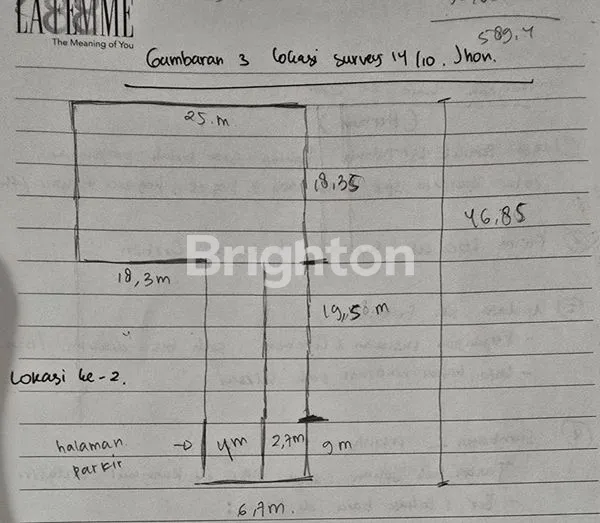 LA FEMME
The Meaning of You
589,4
Gambaran 3 lokasi survey 14/10. Jhon.
25.m
18,35
46,85
Brighton
18,3m
19,5 m
Lokasi ke-2.
halaman parkir → 4m 2,7m 9m
6,7m.